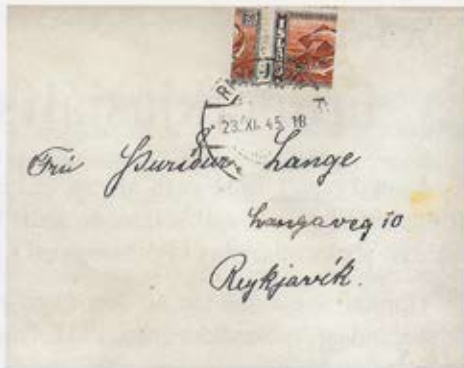 ÍSLAND
23.XI.45.18
Frú Þuríður Lange
Laugaveg 10
Reykjavík.